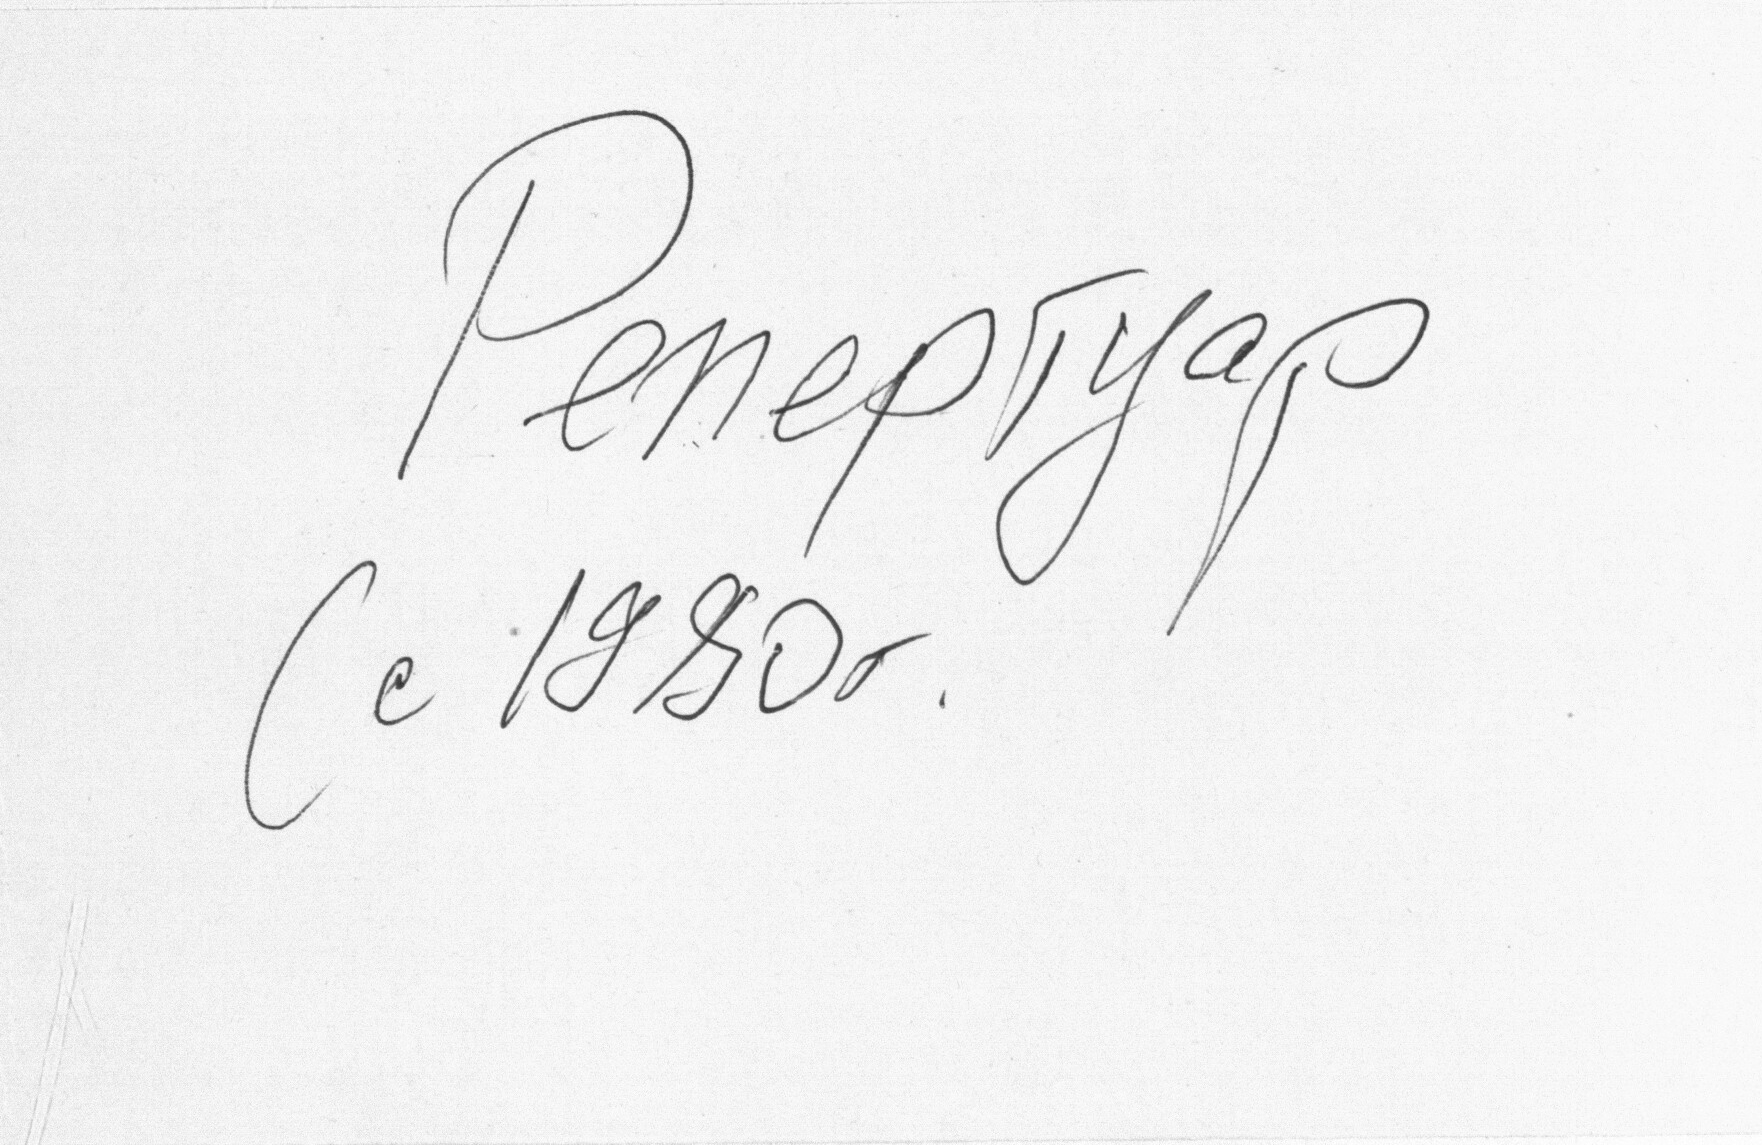 Репертуар
(с 1980г.